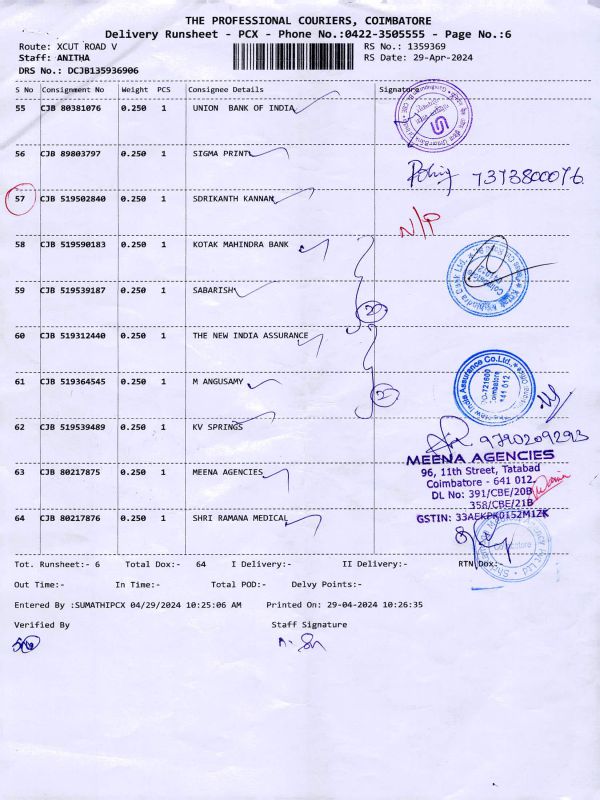 THE PROFESSIONAL COURIERS, COIMBATORE
Delivery Runsheet - PCX - Phone No.:0422-3505555 - Page No.:6
Route: XCUT ROAD V RS No.: 1359369
Staff: ANITHA RS Date: 29-Apr-2024
DRS No.: DCJB135936906
S No Consignment No Weight PCS Consignee Details Signature
55 CJB 80381076 0.250 1 UNION BANK OF INDIA
56 CJB 89803797 0.250 1 SIGMA PRINT
7373800076
57 CJB 519502840 0.250 1 SDRIKANTH KANNAN
N/P
58 CJB 519590183 0.250 1 KOTAK MAHINDRA BANK
59 CJB 519539187 0.250 1 SABARISH
60 CJB 519312440 0.250 1 THE NEW INDIA ASSURANCE
The New India Assurance Co.Ltd.
DO-721600
Coimbatore
641 012
61 CJB 519364545 0.250 1 M ANGUSAMY
62 CJB 519539489 0.250 1 KV SPRINGS
9790209293
MEENA AGENCIES
96, 11th Street, Tatabad
Coimbatore - 641 012.
DL No: 391/CBE/20B
358/CBE/21B
GSTIN: 33AEKPK0152M1ZK
63 CJB 80217875 0.250 1 MEENA AGENCIES
64 CJB 80217876 0.250 1 SHRI RAMANA MEDICAL
Tot. Runsheet:- 6 Total Dox:- 64 I Delivery:- II Delivery:- RTN Dox:-
Out Time:- In Time:- Total POD:- Delvy Points:-
Entered By :SUMATHIPCX 04/29/2024 10:25:06 AM Printed On: 29-04-2024 10:26:35
Verified By Staff Signature